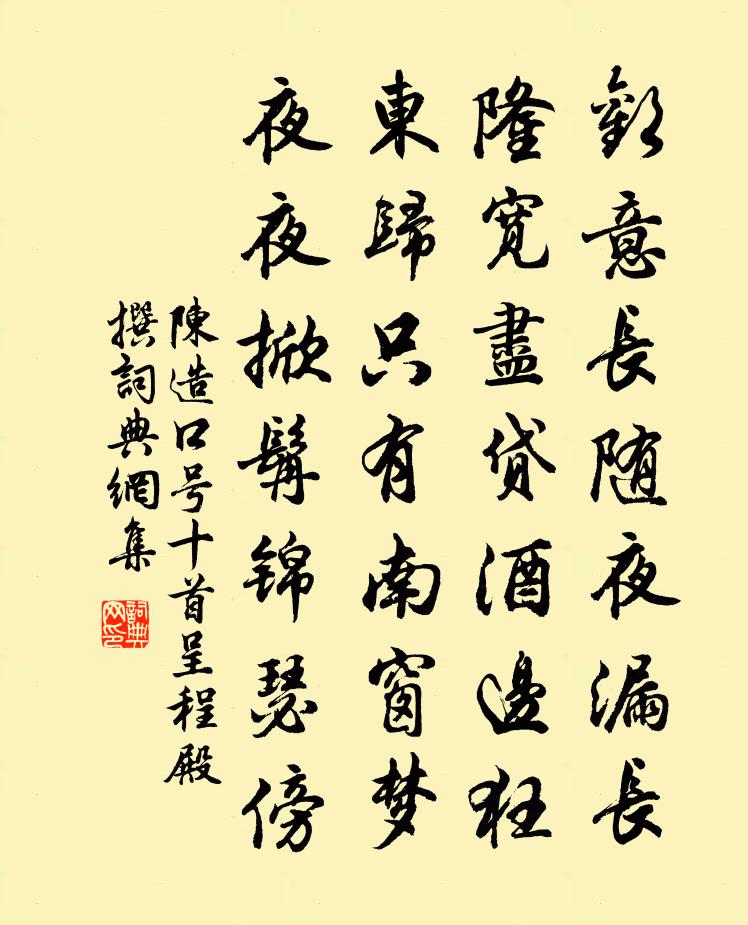 歡意長随夜漏長
隆寬盡貸酒邊狂
東歸只有南窗梦
夜夜掀髯锦瑟傍
陳造口号十首呈程殿
撰詞典網集
詞典网印